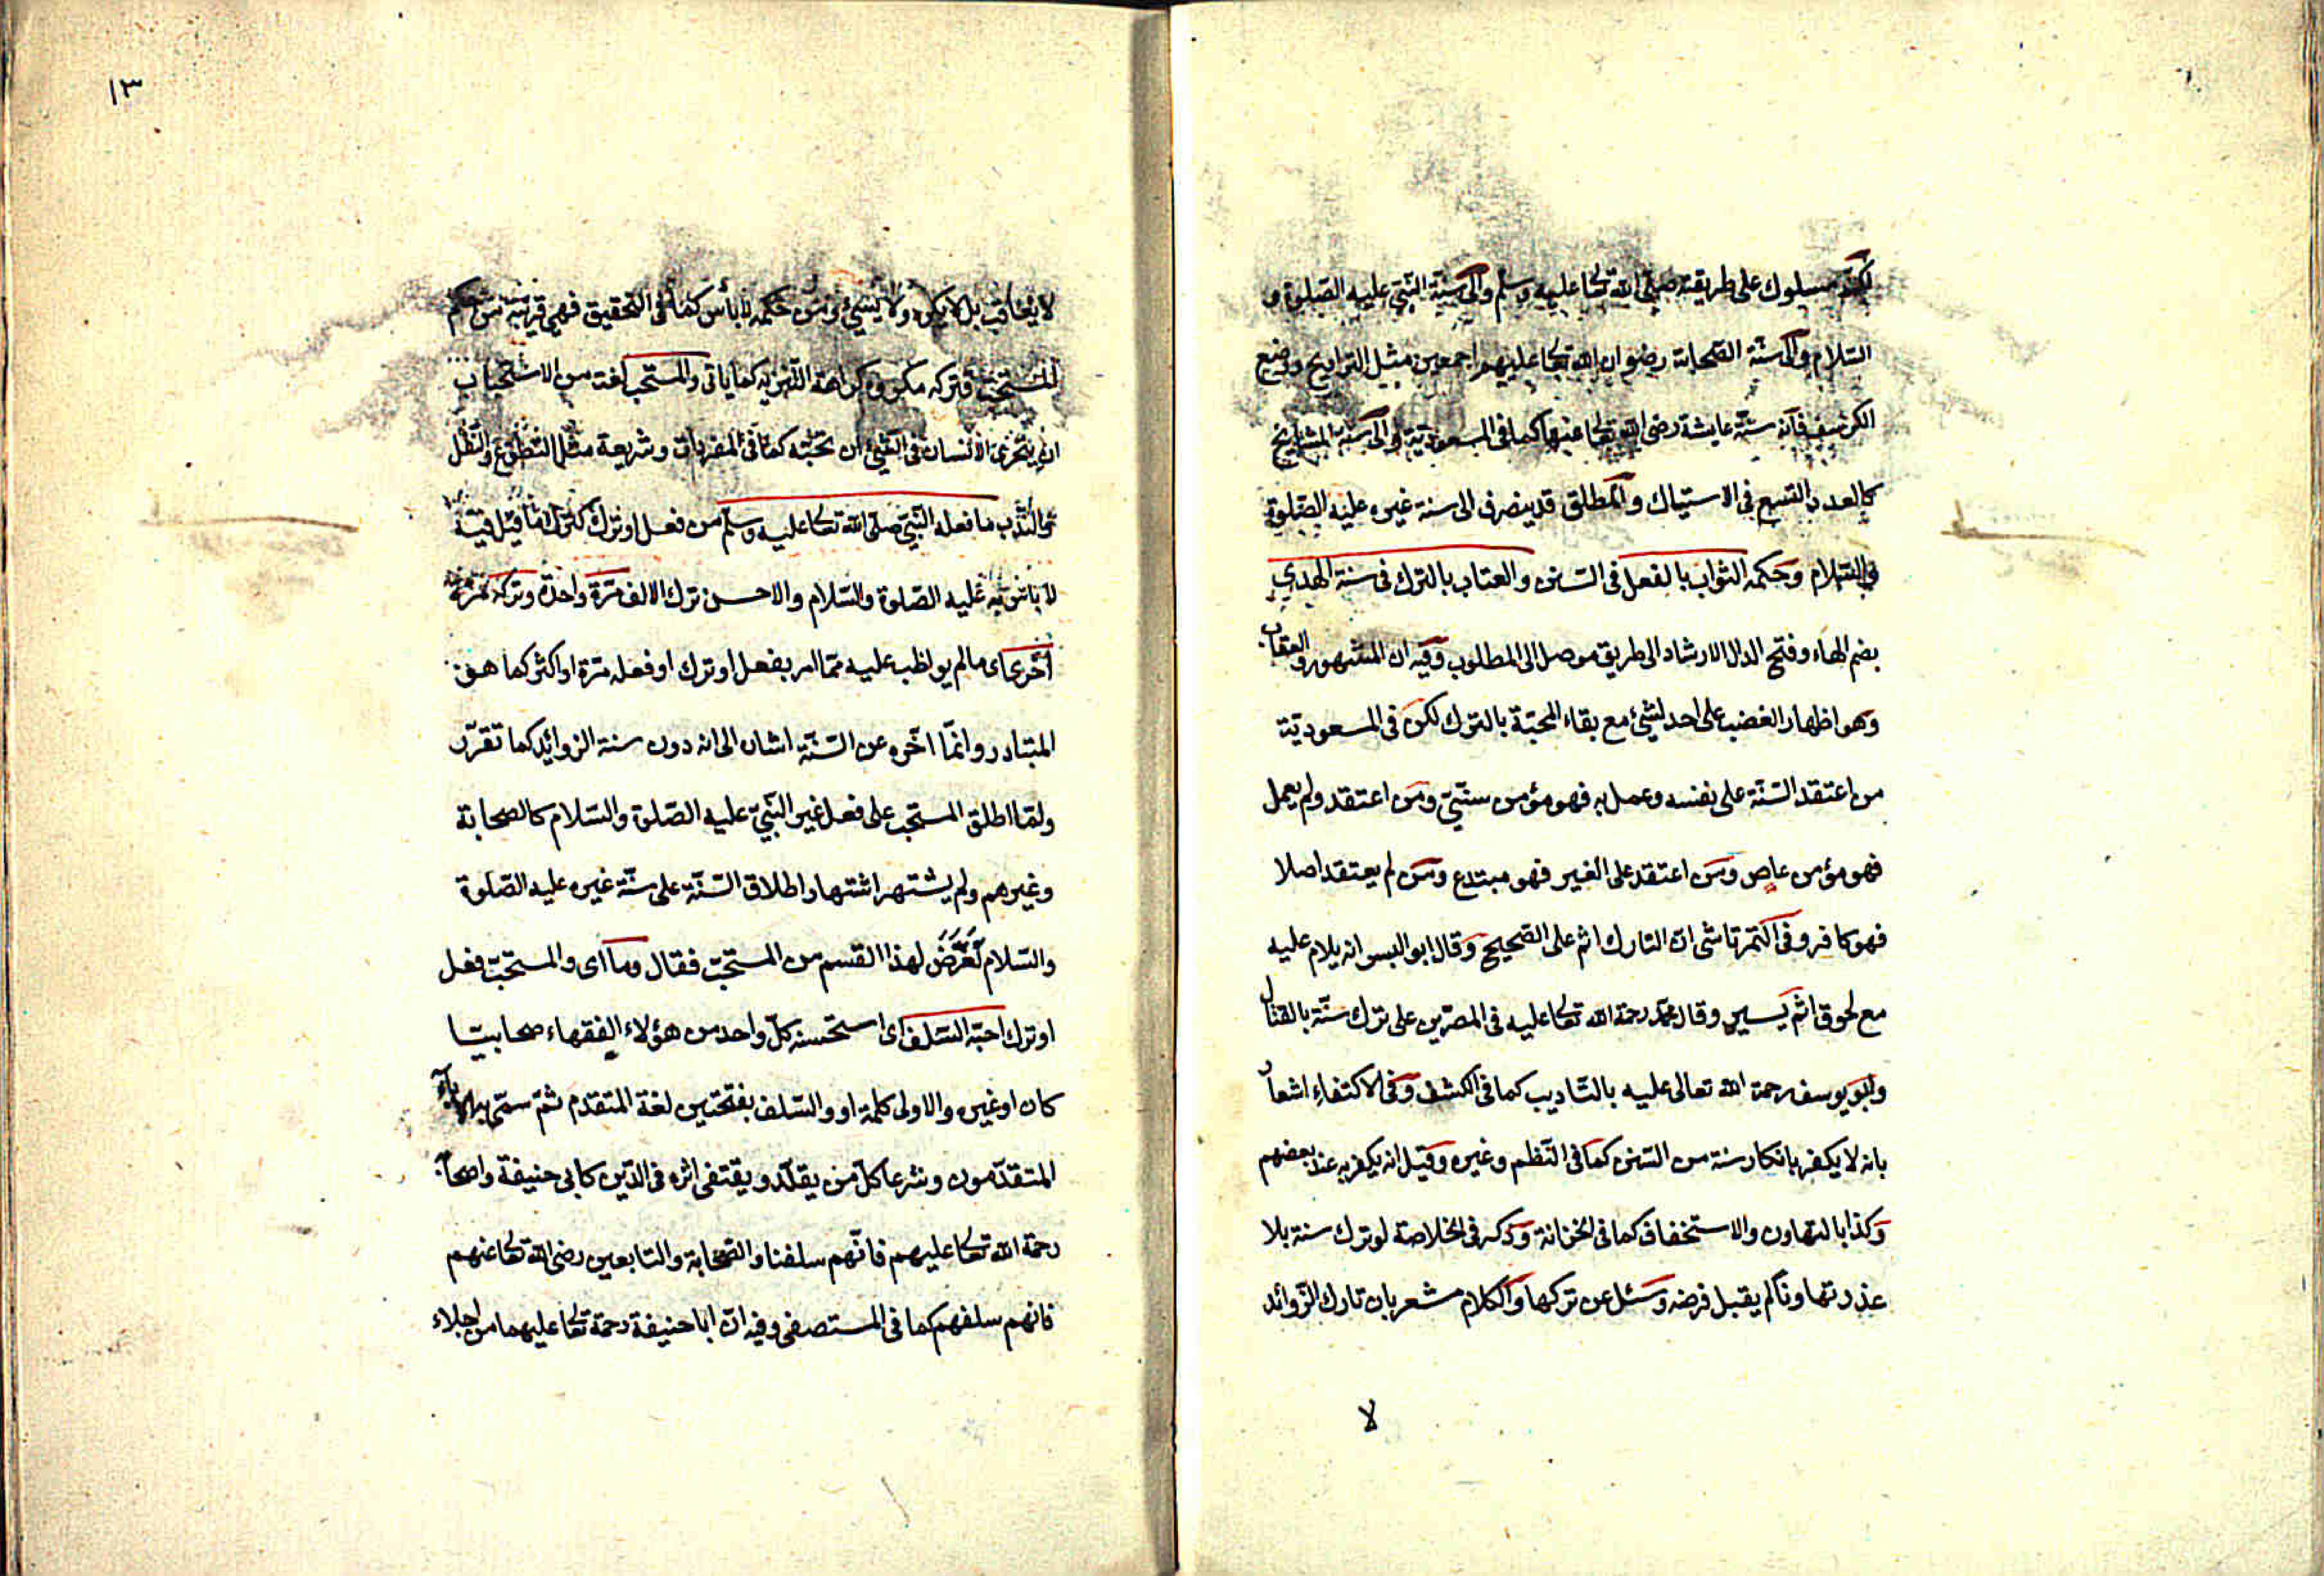 لكنه مسلوك على طريقته صلى الله تعا عليه وسلم والى سنة النبي عليه الصلوة و
السلام والى سنة الصحابة رضوان الله تعا عليهم اجمعين مثل التراويح ووضع
الكرسف فانه سنة عايشة رضى الله تعا عنها كما فى المسعودية والى سنة المشايخ
كالعدد التسع فى الاستياك والمطلق قد ينصرف الى سنة غيره عليه الصلوة
والسلام وحكمه الثواب بالفعل فى السنن والعتاب بالترك فى سنة الهدى
بضم الهاء وفتح الدال الارشاد الى طريق موصل الى المطلوب وفيه ان المشهور العقاب
وهو اظهار الغضب على احد لشئ مع بقاء المحبة بالترك لكن فى المسعودية
من اعتقد السنة على نفسه وعمل به فهو مؤمن سنى ومن اعتقد ولم يعمل
فهو مؤمن عاص ومن اعتقد على الغير فهو مبتدع ومن لم يعتقد اصلا
فهو كافر وفى التمرتاشى ان التارك اثم على الصحيح وقال ابو اليسر انه يلام عليه
مع لحوق اثم يسير وقال محمد رحمة الله تعا عليه فى المصرين على ترك سنة بالقتال
وابو يوسف رحمة الله تعالى عليه بالتاديب كما فى الكشف وفى الاكتفاء اشعار
بانه لا يكفر بانكار سنة من السنن كما فى النظم وغيره وقيل انه يكفر به عند بعضهم
وكذا بالتهاون والاستخفاف كما فى الخزانة وذكر فى الخلاصة لو ترك سنة بلا
عذر تهاونا لم يقبل فرضه وسئل عن تركها والكلام مشعر بان تارك الزوائد
لا
١٣
لا يعاقب بل لا يكره ولا يسئ ومن حكمه لا بأس كما فى التحقيق فهى قريبة من حكم
المستحب فتركه مكروه كراهة التنزيه كما ياتى والمستحب لغة من الاستحباب
ان يتحرى الانسان فى الشئ ان يحبه كما فى المفردات وشريعة مثل التطوع والنفل
والندب ما فعله النبي صلى الله تعا عليه وسلم من فعل او ترك كترك ما قيل فيه
لا باس به عليه الصلوة والسلام والاحسن ترك الالف مرة واحدة وتركه مرة
اخرى اى ما لم يواظب عليه مما امر بفعل او ترك او فعله مرة او اكثر كما هو
المتبادر وانما اخره عن السنة اشارة الى انه دون سنة الزوائد كما تقرر
ولما اطلق المستحب على فعل غير النبي عليه الصلوة والسلام كالصحابة
وغيرهم ولم يشتهر اشتهار اطلاق السنة على سنة غيره عليه الصلوة
والسلام تعرض لهذا القسم من المستحب فقال وما اى والمستحب فعل
او ترك احبه السلف اى استحسنه كل واحد من هؤلاء الفقهاء صحابيا
كان او غيره والاولى كلمة او والسلف بفتحتين لغة المتقدم ثم سمى به الآباء
المتقدمون وشرعا كل من يقلد ويقتفى اثره فى الدين كابى حنيفة واصحابه
رحمة الله تعا عليهم فانهم سلفنا والصحابة والتابعين رضى الله تعا عنهم
فانهم سلفهم كما فى المستصفى وفيه ان ابا حنيفة رحمة تعا عليهما من اجلاء